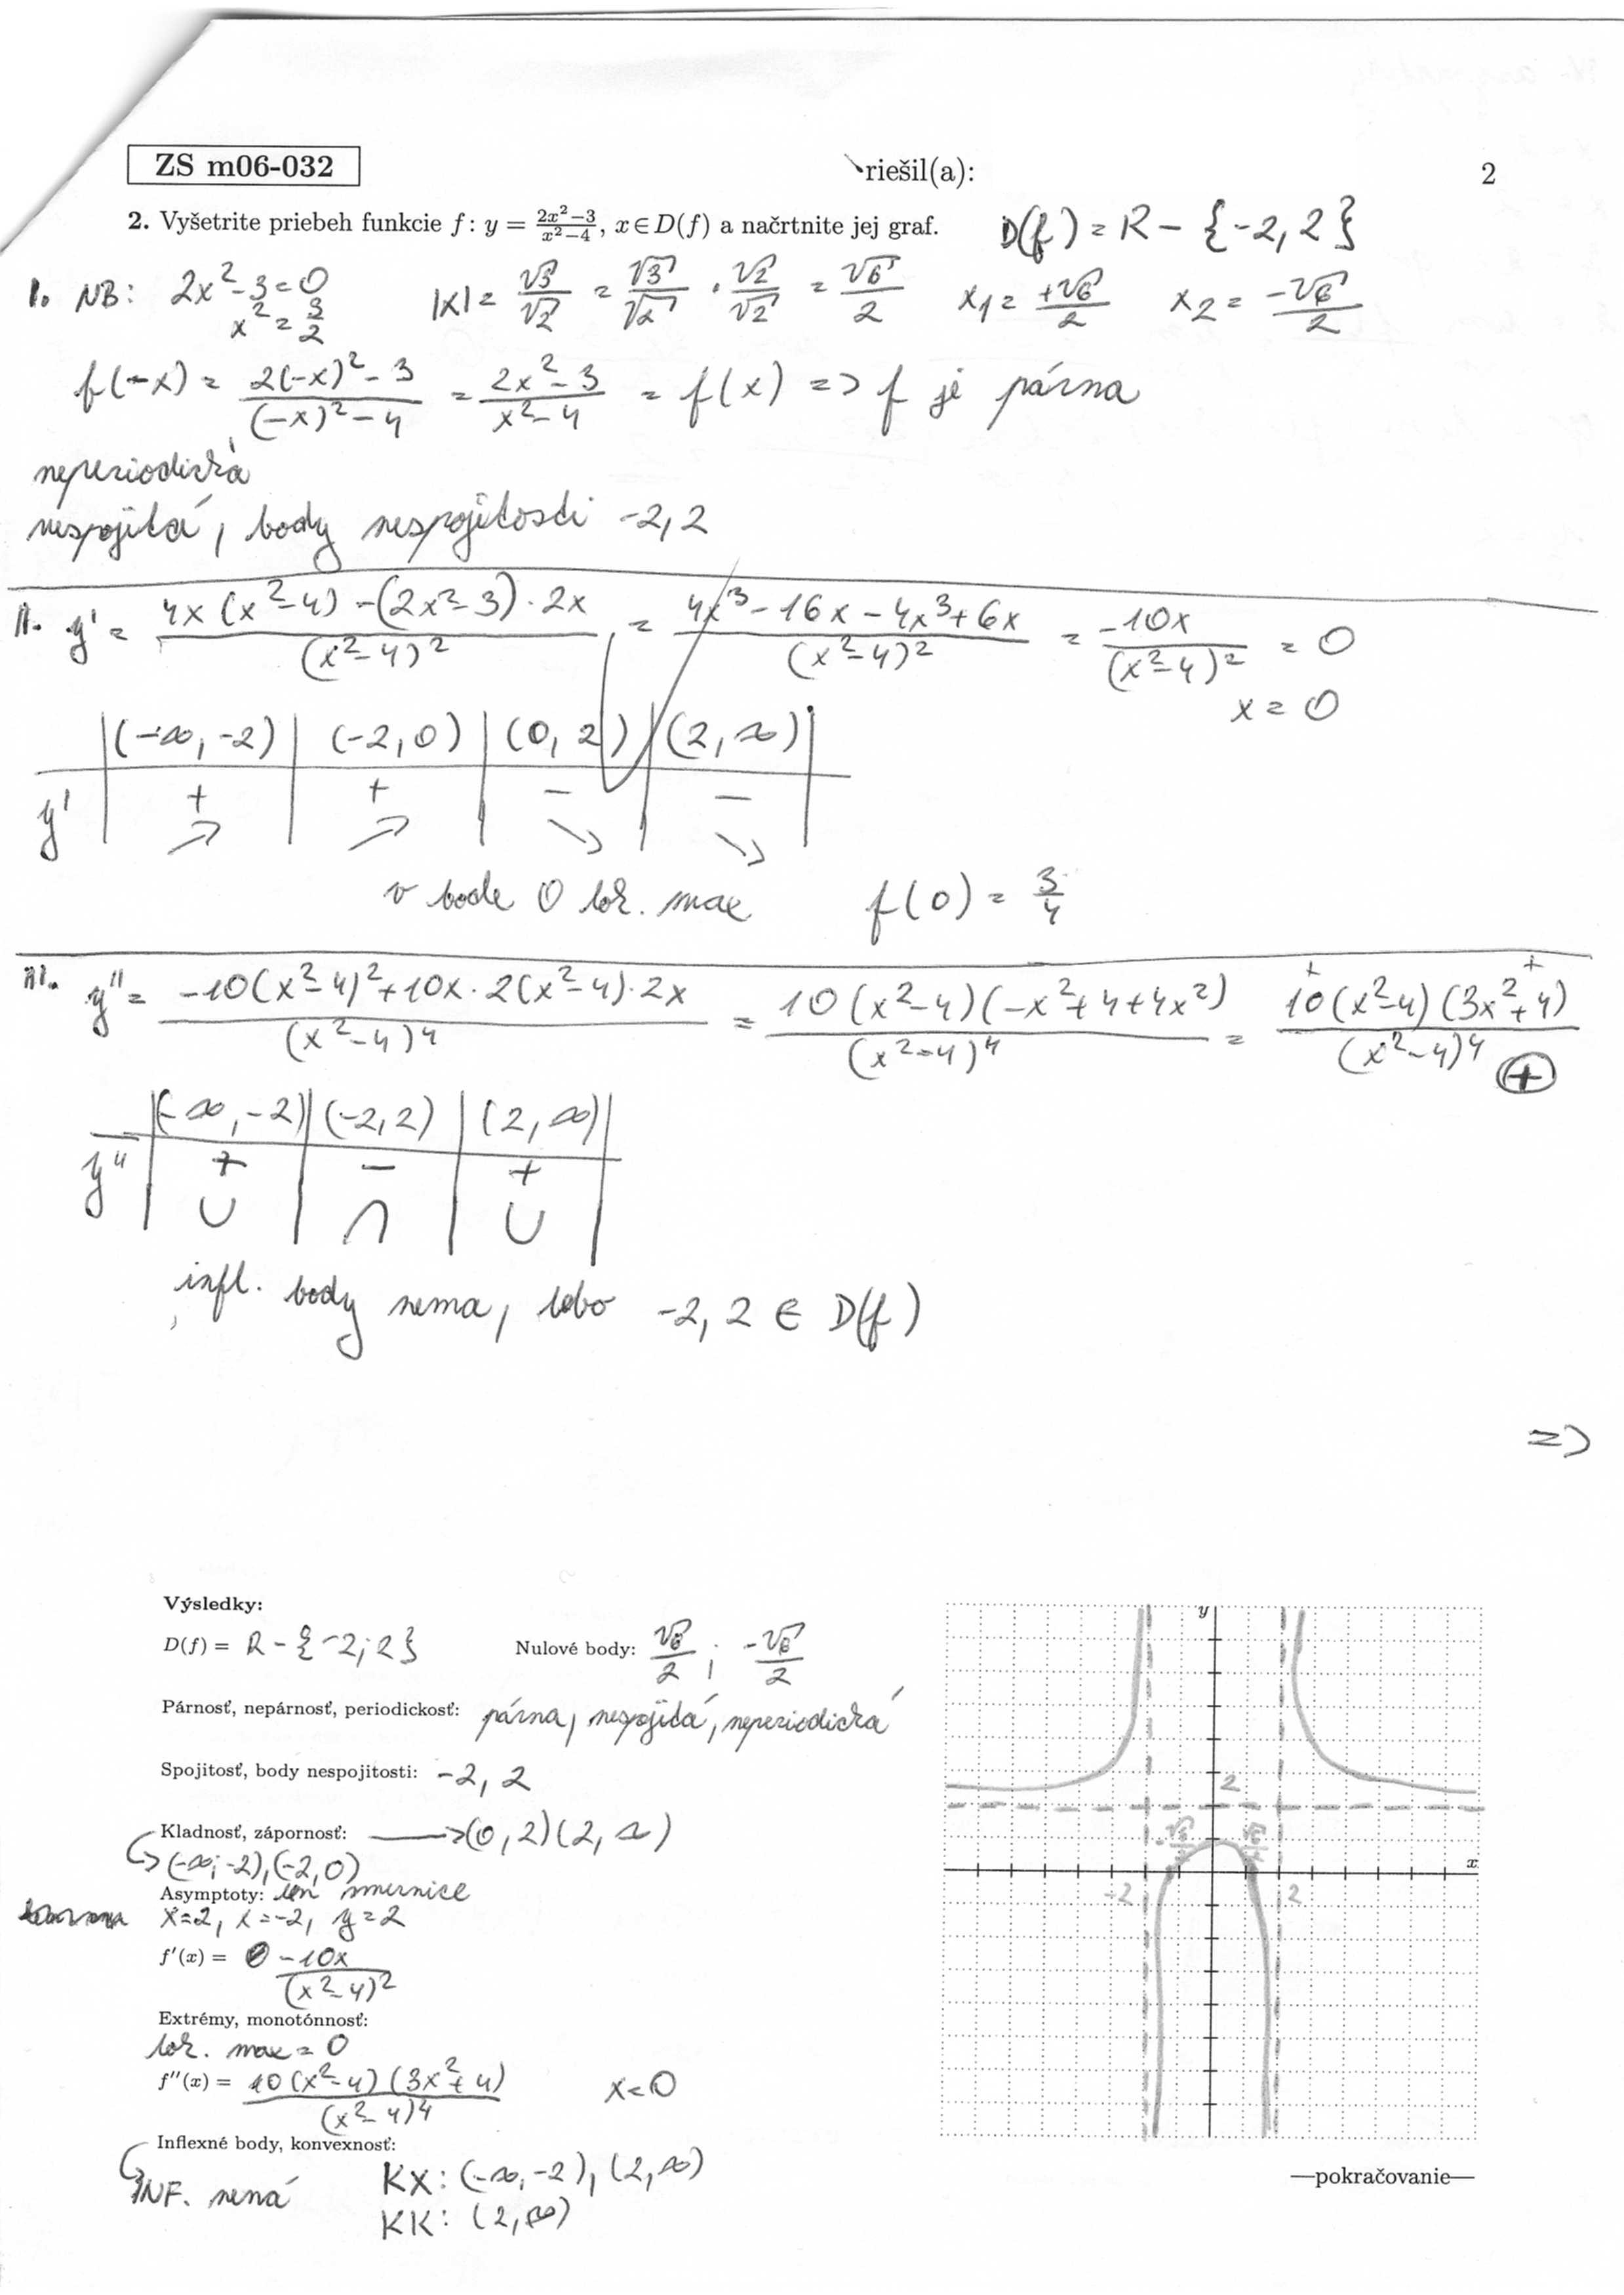 ZS m06-032 riešil(a): 2
2. Vyšetrite priebeh funkcie f: y = (2x²−3)/(x²−4), x∈D(f) a načrtnite jej graf. D(f) = R − {-2, 2}
1. NB: 2x²-3=0 |x| = √3/√2 = √3/√2 · √2/√2 = √6/2 x₁ = +√6/2 x₂ = -√6/2
x² = 3/2
f(-x) = (2(-x)²-3)/((-x)²-4) = (2x²-3)/(x²-4) = f(x) => f je párna
neperiodická
nespojitá, body nespojitosti -2, 2
II. y' = (4x(x²-4)-(2x²-3)·2x)/(x²-4)² = (4x³-16x-4x³+6x)/(x²-4)² = -10x/(x²-4)² = 0
x = 0
(-∞, -2) (-2, 0) (0, 2) (2, ∞)
y' + + − −
↗ ↗ ↘ ↘
v bode 0 lok. max f(0) = 3/4
III. y'' = (-10(x²-4)²+10x·2(x²-4)·2x)/(x²-4)⁴ = (10(x²-4)(-x²+4+4x²))/(x²-4)⁴ = (10(x²-4)(3x²+4))/(x²-4)⁴
+ + +
(-∞, -2) (-2, 2) (2, ∞)
y'' + − +
∪ ∩ ∪
infl. body nema, lebo -2, 2 ∈ D(f)
=>
Výsledky:
D(f) = R - {-2; 2} Nulové body: √6/2 ; -√6/2
Párnosť, nepárnosť, periodickosť: párna, nespojitá, neperiodická
Spojitosť, body nespojitosti: -2, 2
Kladnosť, zápornosť: → (0, 2) (2, ∞)
(-∞; -2), (-2, 0)
Asymptoty: len smernice
x=2, x=-2, y=2
f′(x) = -10x/(x²-4)²
Extrémy, monotónnosť:
lok. max = 0
f″(x) = 10(x²-4)(3x²+4)/(x²-4)⁴ x=0
Inflexné body, konvexnosť:
INF. nemá KX: (-∞, -2), (2, ∞)
KK: (2, ∞)
y
2
-√6/2 √6/2
x
-2 2
—pokračovanie—